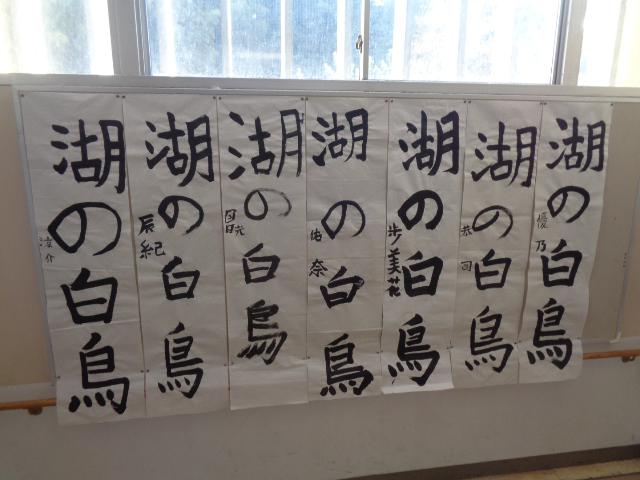 湖の白鳥
優乃
湖の白鳥
恭司
湖の白鳥
歩美花
湖の白鳥
佑奈
湖の白烏
湖の白鳥
辰紀
湖の白鳥
介